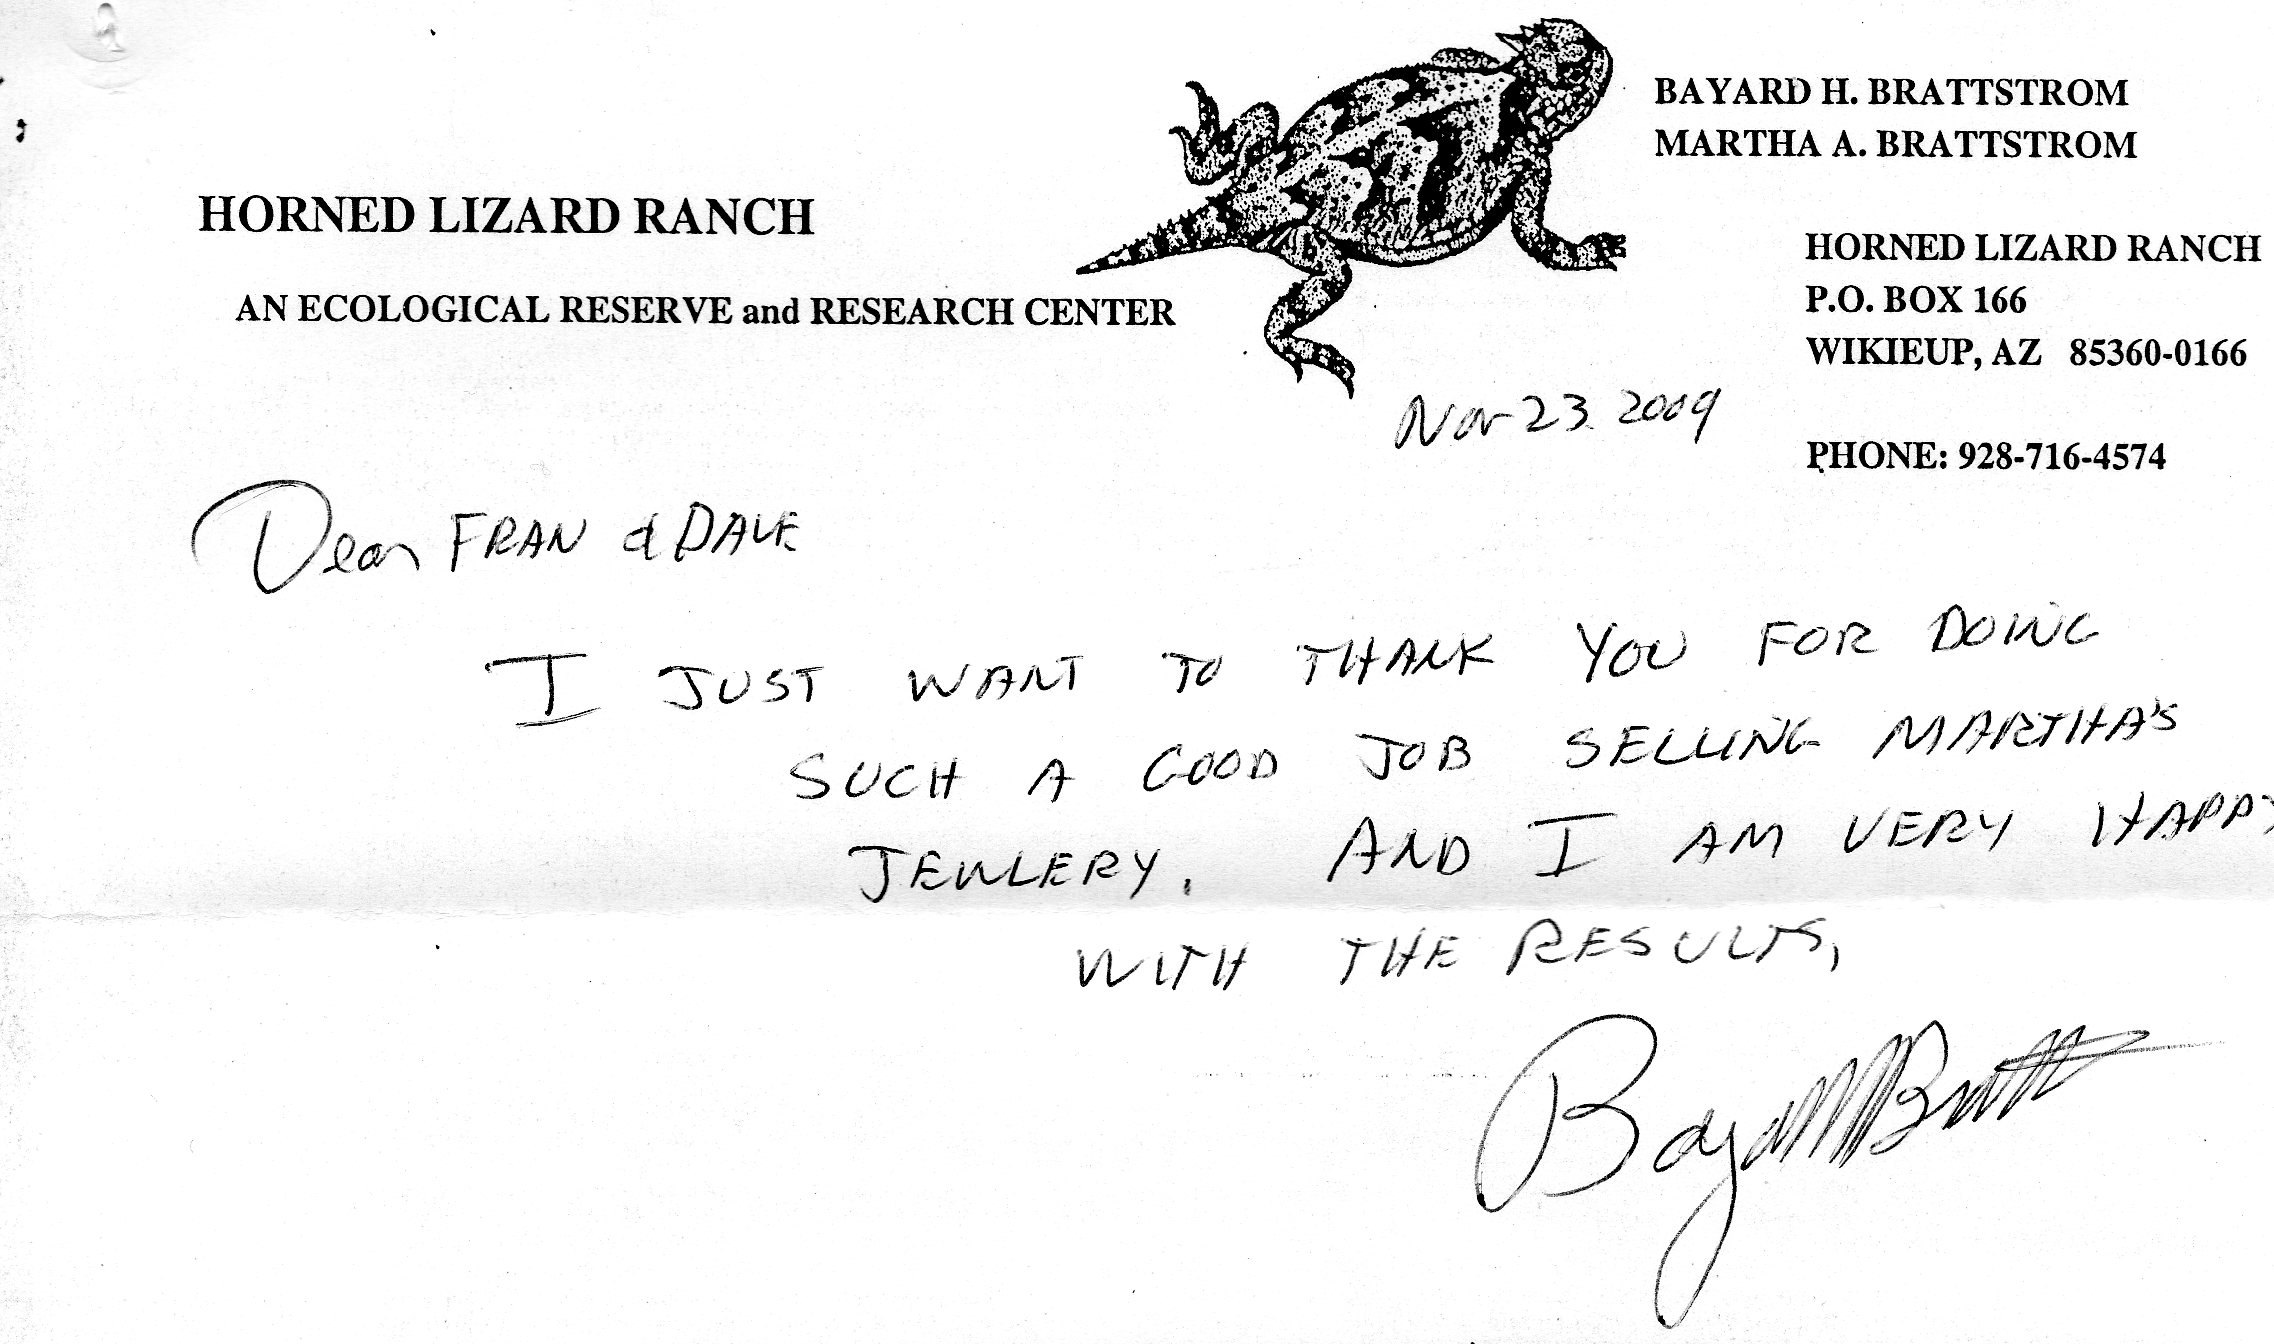 BAYARD H. BRATTSTROM
MARTHA A. BRATTSTROM
HORNED LIZARD RANCH
AN ECOLOGICAL RESERVE and RESEARCH CENTER
HORNED LIZARD RANCH
P.O. BOX 166
WIKIEUP, AZ 85360-0166
PHONE: 928-716-4574
Nov 23 2009
Dear FRAN & DALE
I JUST WANT TO THANK YOU FOR DOING
SUCH A GOOD JOB SELLING MARTHA'S
JEWLERY. AND I AM VERY HAPPY
WITH THE RESULTS,
Bayard Bratt